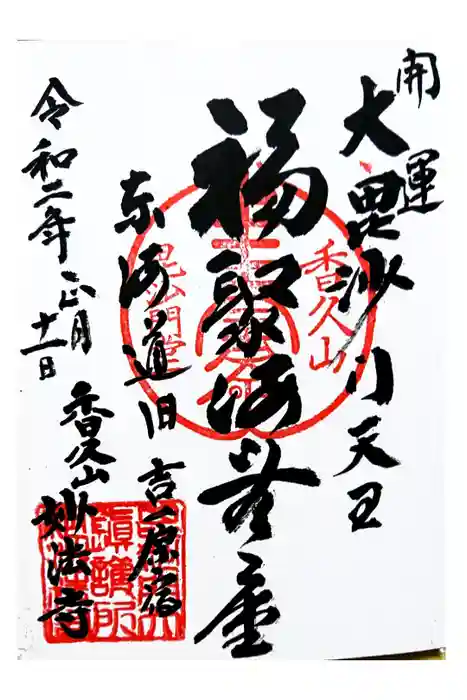 開運
大毘沙門天王
福聚海無量
東海道旧吉原宿
香久山
毘沙門堂
香久山妙法寺
令和二年正月十一日